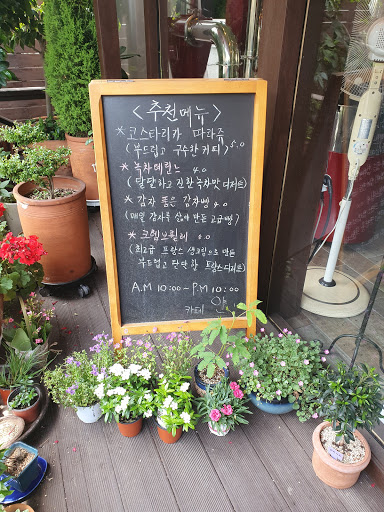 <추천메뉴>
* 코스타리카 따라쥬
(부드럽고 구수한 커피) 5.0
* 녹차테린느 4.0
(달달하고 진한 녹차맛 디저트)
* 감자 품은 감자빵 4.0
(매일 감자를 삶아 만든 고급빵)
* 크렘브륄레 8.0
(최고급 프랑스 생크림으로 만든
부드럽고 탄탄한 프랑스디저트)
A.M 10:00 - P.M 10:00
카페 안